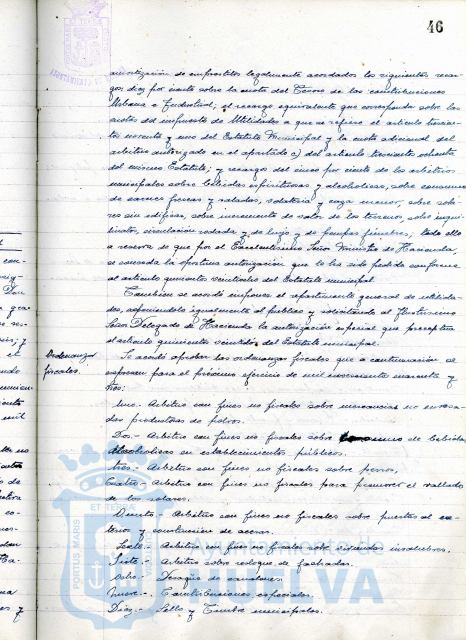 46
amortización de empréstitos legalmente acordados los siguientes recar-
gos; diez por ciento sobre la cuota del Tesoro de las contribuciones
Urbana e Industrial; el recargo equivalente que corresponda sobre las
cuotas del impuesto de Utilidades a que se refiere el artículo trescien-
tos noventa y uno del Estatuto Municipal y la cuota adicional del
arbitrio autorizado en el apartado c) del artículo trescientos ochenta
del mismo Estatuto; y recargos del cinco por ciento de los arbitrios
municipales sobre bebidas espirituosas y alcoholicas, sobre consumo
de carnes frescas y saladas, volatería y caza menor, sobre sola-
res sin edificar, sobre incremento de valor de los terrenos, sobre inqui-
linatos, circulación rodada y de lujo y de pompas fúnebres; todo ello
a reserva de que por el Excelentísimo Señor Ministro de Hacienda,
se conceda la oportuna autorización que le ha sido pedida conforme
al artículo quinientos veintidos del Estatuto municipal.
También se acordó imponer el repartimiento general de utilida-
des, exponiéndole igualmente al público y solicitando del Ilustrísimo
Señor Delegado de Hacienda la autorización especial que preceptúa
el artículo quinientos veintidos del Estatuto municipal.
Ordenanzas
fiscales.
Se acordó aprobar las ordenanzas fiscales que a continuación se
expresan para el próximo ejercicio de mil novecientos cuarenta y
tres:
Uno.- Arbitrio con fines no fiscales sobre mercancías no envasa-
das productoras de polvos.
Dos.- Arbitrio con fines no fiscales sobre consumo de bebidas
alcoholicas en establecimientos públicos.
Tres.- Arbitrio con fines no fiscales sobre perros.
Cuatro.- Arbitrio con fines no fiscales para promover el vallado
de los solares.
Quinto.- Arbitrio con fines no fiscales sobre puertas al ex-
terior y construcción de aceras.
Sexto.- Arbitrio con fines no fiscales sobre viviendas insalubres.
Siete.- Arbitrio sobre revoque de fachadas.
Ocho.- Desagüe de canalones.
Nueve.- Contribuciones especiales.
Diez.- Sello y Timbre municipales.
PORTUS MARIS
ET TERRÆ
Ayuntamiento de